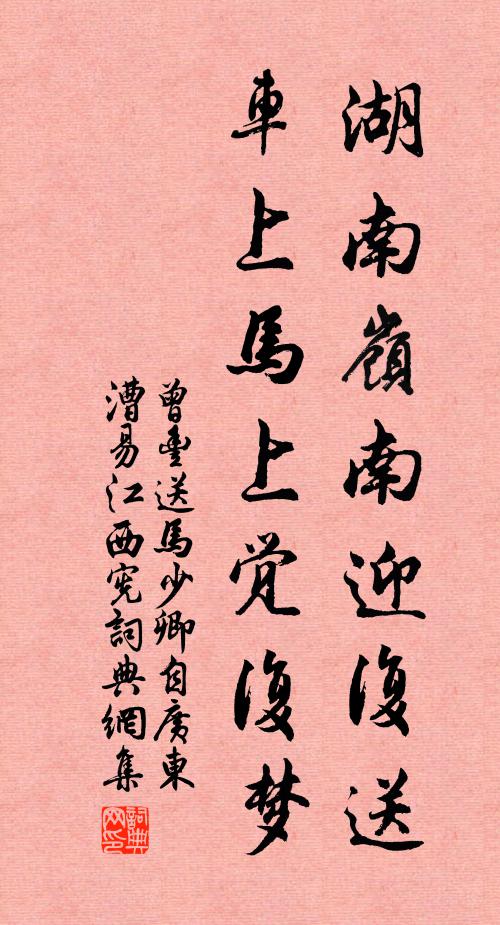 湖南嶺南迎復送
車上馬上觉復梦
曾豊送馬少卿自廣東
漕易江西宪詞典網集
詞典网印